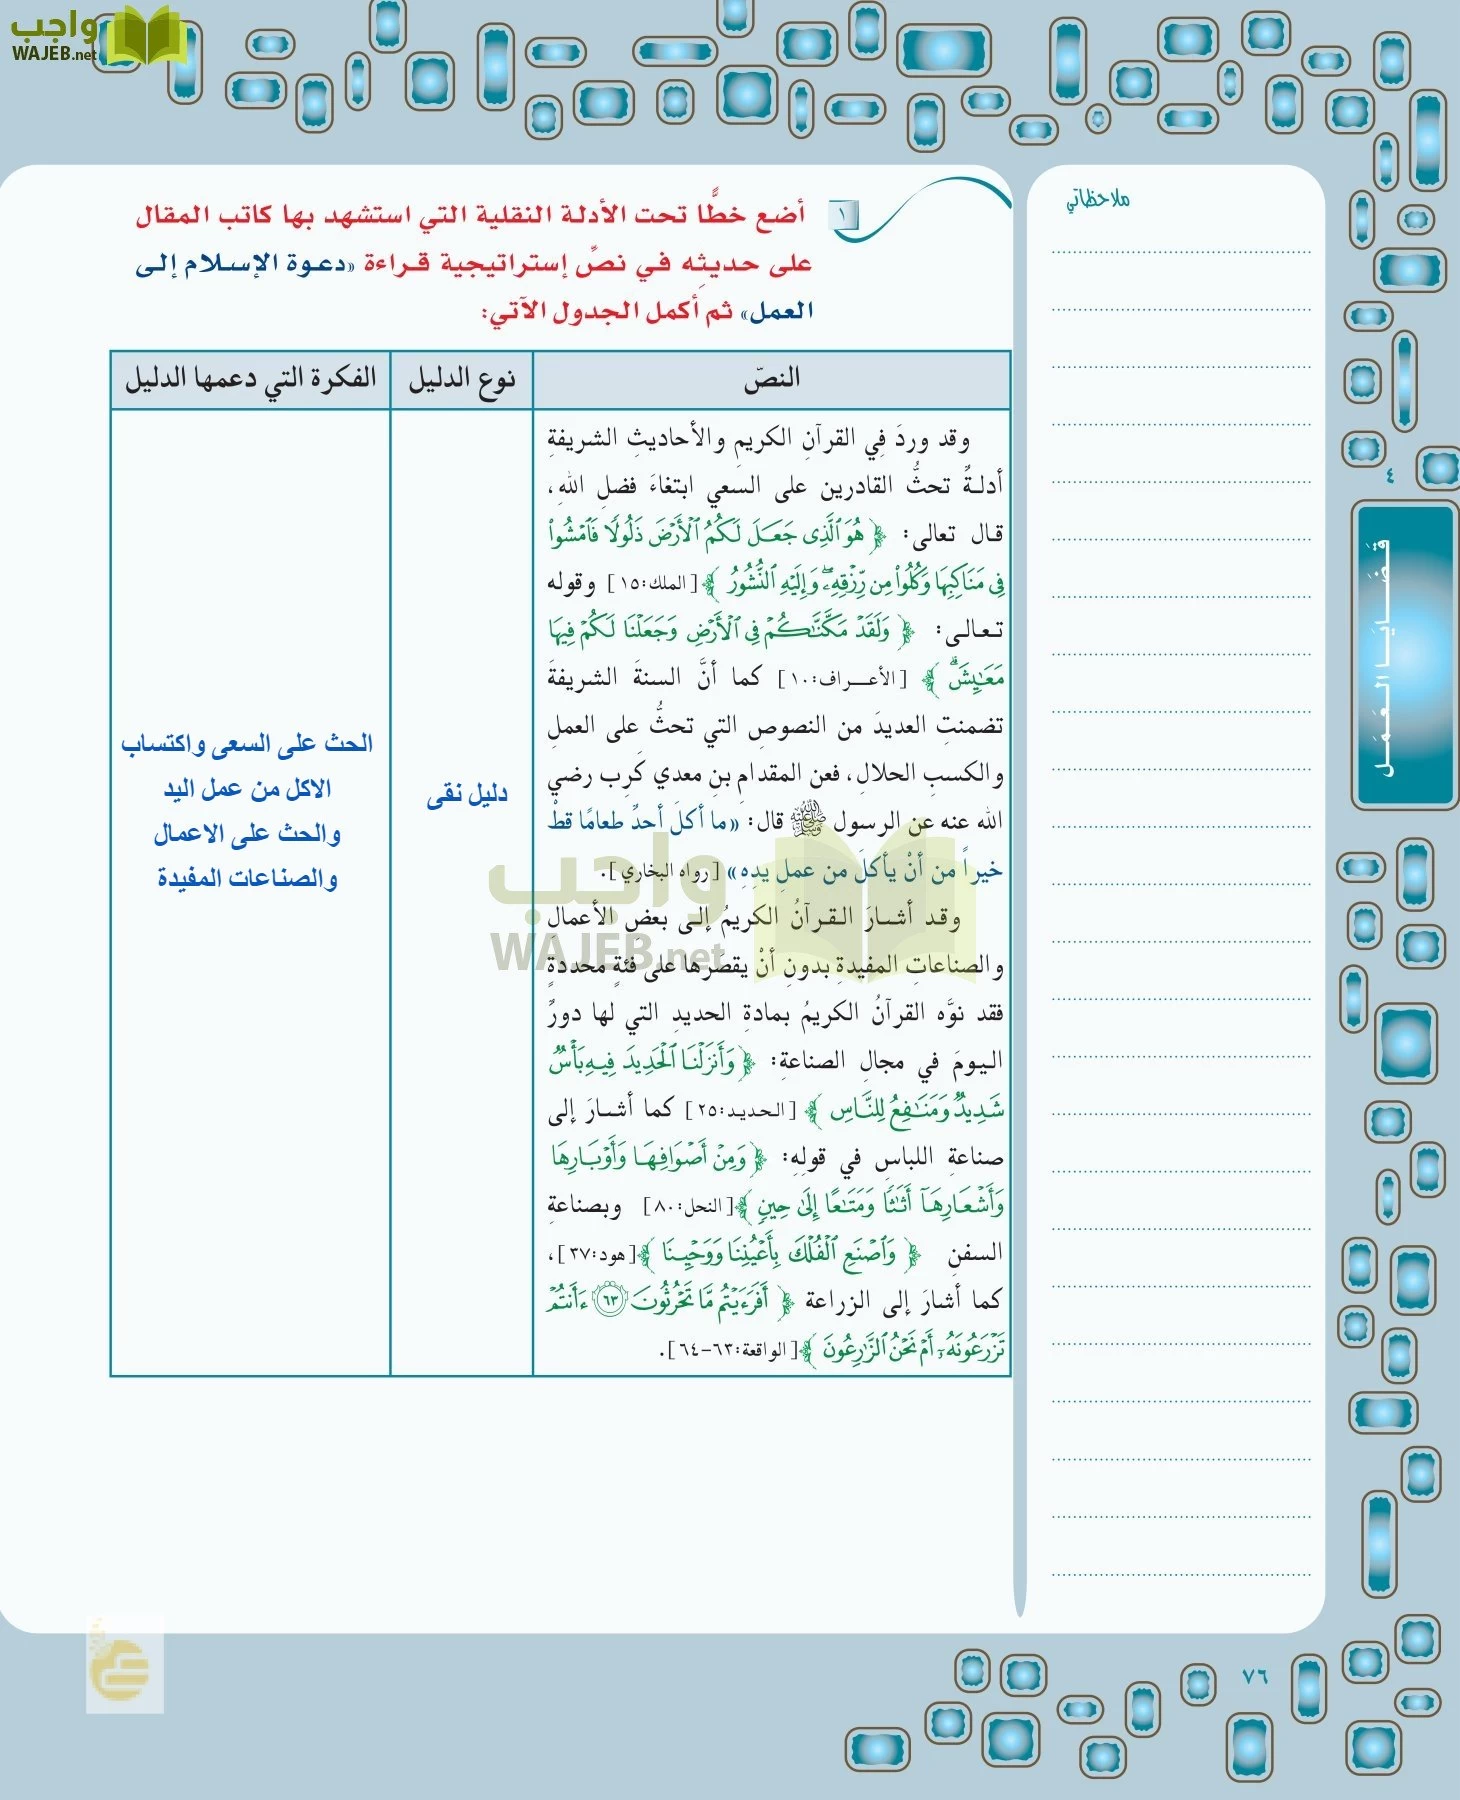 واجب
WAJEB.net
ملاحظاتي
١
أضع خطًّا تحت الأدلة النقلية التي استشهد بها كاتب المقال
على حديثِه في نصِّ إستراتيجية قراءة «دعوة الإسلام إلى
العمل» ثم أكمل الجدول الآتي:
النصّ
نوع الدليل
الفكرة التي دعمها الدليل
وقد وردَ فِي القرآنِ الكريمِ والأحاديثِ الشريفةِ
أدلةٌ تحثُّ القادرين على السعي ابتغاءَ فضلِ اللهِ،
قال تعالى: ﴿ هُوَ ٱلَّذِى جَعَلَ لَكُمُ ٱلْأَرْضَ ذَلُولًا فَٱمْشُوا۟
فِى مَنَاكِبِهَا وَكُلُوا۟ مِن رِّزْقِهِۦ ۖ وَإِلَيْهِ ٱلنُّشُورُ ﴾ [الملك:١٥] وقوله
تعالى: ﴿ وَلَقَدْ مَكَّنَّـٰكُمْ فِى ٱلْأَرْضِ وَجَعَلْنَا لَكُمْ فِيهَا
مَعَـٰيِشَ ۗ ﴾ [الأعراف:١٠] كما أنَّ السنةَ الشريفةَ
تضمنتِ العديدَ من النصوصِ التي تحثُّ على العملِ
والكسبِ الحلالِ، فعن المقدامِ بنِ معدي كَرِب رضي
الله عنه عن الرسول ﷺ قال: «ما أكلَ أحدٌ طعامًا قطْ
خيراً من أنْ يأكلَ من عملِ يدِهِ» [رواه البخاري].
وقد أشارَ القرآنُ الكريمُ إلى بعضِ الأعمالِ
والصناعاتِ المفيدةِ بدونِ أنْ يقصُرَها على فئةٍ محددةٍ
فقد نوَّه القرآنُ الكريمُ بمادةِ الحديدِ التي لها دورٌ
اليومَ في مجالِ الصناعةِ: ﴿ وَأَنزَلْنَا ٱلْحَدِيدَ فِيهِ بَأْسٌ
شَدِيدٌ وَمَنَـٰفِعُ لِلنَّاسِ ﴾ [الحديد:٢٥] كما أشارَ إلى
صناعةِ اللباسِ في قولِهِ: ﴿ وَمِنْ أَصْوَافِهَا وَأَوْبَارِهَا
وَأَشْعَارِهَآ أَثَـٰثًا وَمَتَـٰعًا إِلَىٰ حِينٍ ﴾ [النحل:٨٠] وبصناعةِ
السفنِ ﴿ وَٱصْنَعِ ٱلْفُلْكَ بِأَعْيُنِنَا وَوَحْيِنَا ﴾ [هود:٣٧]،
كما أشارَ إلى الزراعة ﴿ أَفَرَءَيْتُم مَّا تَحْرُثُونَ ٦٣ ءَأَنتُمْ
تَزْرَعُونَهُۥٓ أَمْ نَحْنُ ٱلزَّٰرِعُونَ ﴾ [الواقعة:٦٣-٦٤].
دليل نقى
الحث على السعى واكتساب
الاكل من عمل اليد
والحث على الاعمال
والصناعات المفيدة
واجب
WAJEB.net
٤
قَضَايَا العَمَل
٧٦